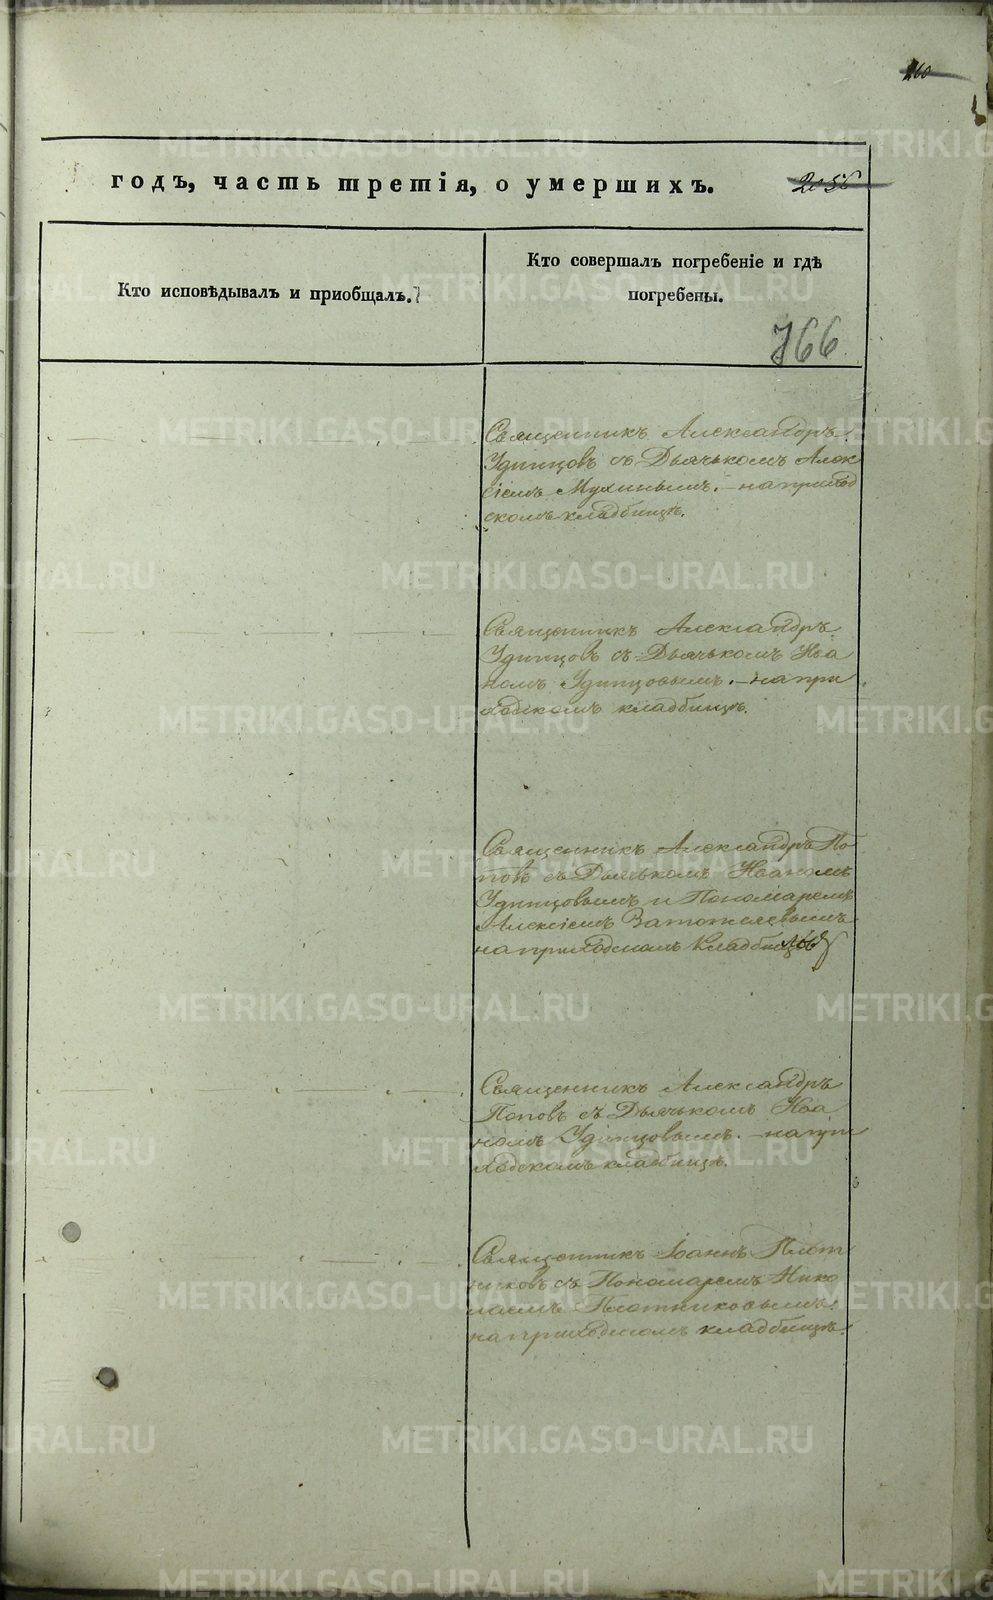 годъ, часть третія, о умершихъ.
2056
Кто исповѣдывалъ и приобщалъ.
Кто совершалъ погребеніе и гдѣ
погребены.
766
Священникъ Александръ
Удинцовъ съ Дьячькомъ Алек
сіемъ Мухинымъ. – на приход
скомъ кладбищѣ.
Священникъ Александръ
Удинцовъ съ Дьячькомъ Ива
номъ Удинцовымъ. – на при
ходскомъ кладбищѣ.
Священникъ Александръ По
повъ съ Дьячькомъ Иваномъ
Удинцовымъ и Пономаремъ
Алексіемъ
на приходскомъ кладбищѣ
Священникъ Александръ
Поповъ съ Дьячькомъ Ива
номъ Удинцовымъ. – на при
ходскомъ кладбищѣ.
Священникъ Іоаннъ Плот
никовъ съ Пономаремъ Нико
лаемъ Плотниковымъ.
на приходскомъ кладбищѣ.
METRIKI.GASO-URAL.RU